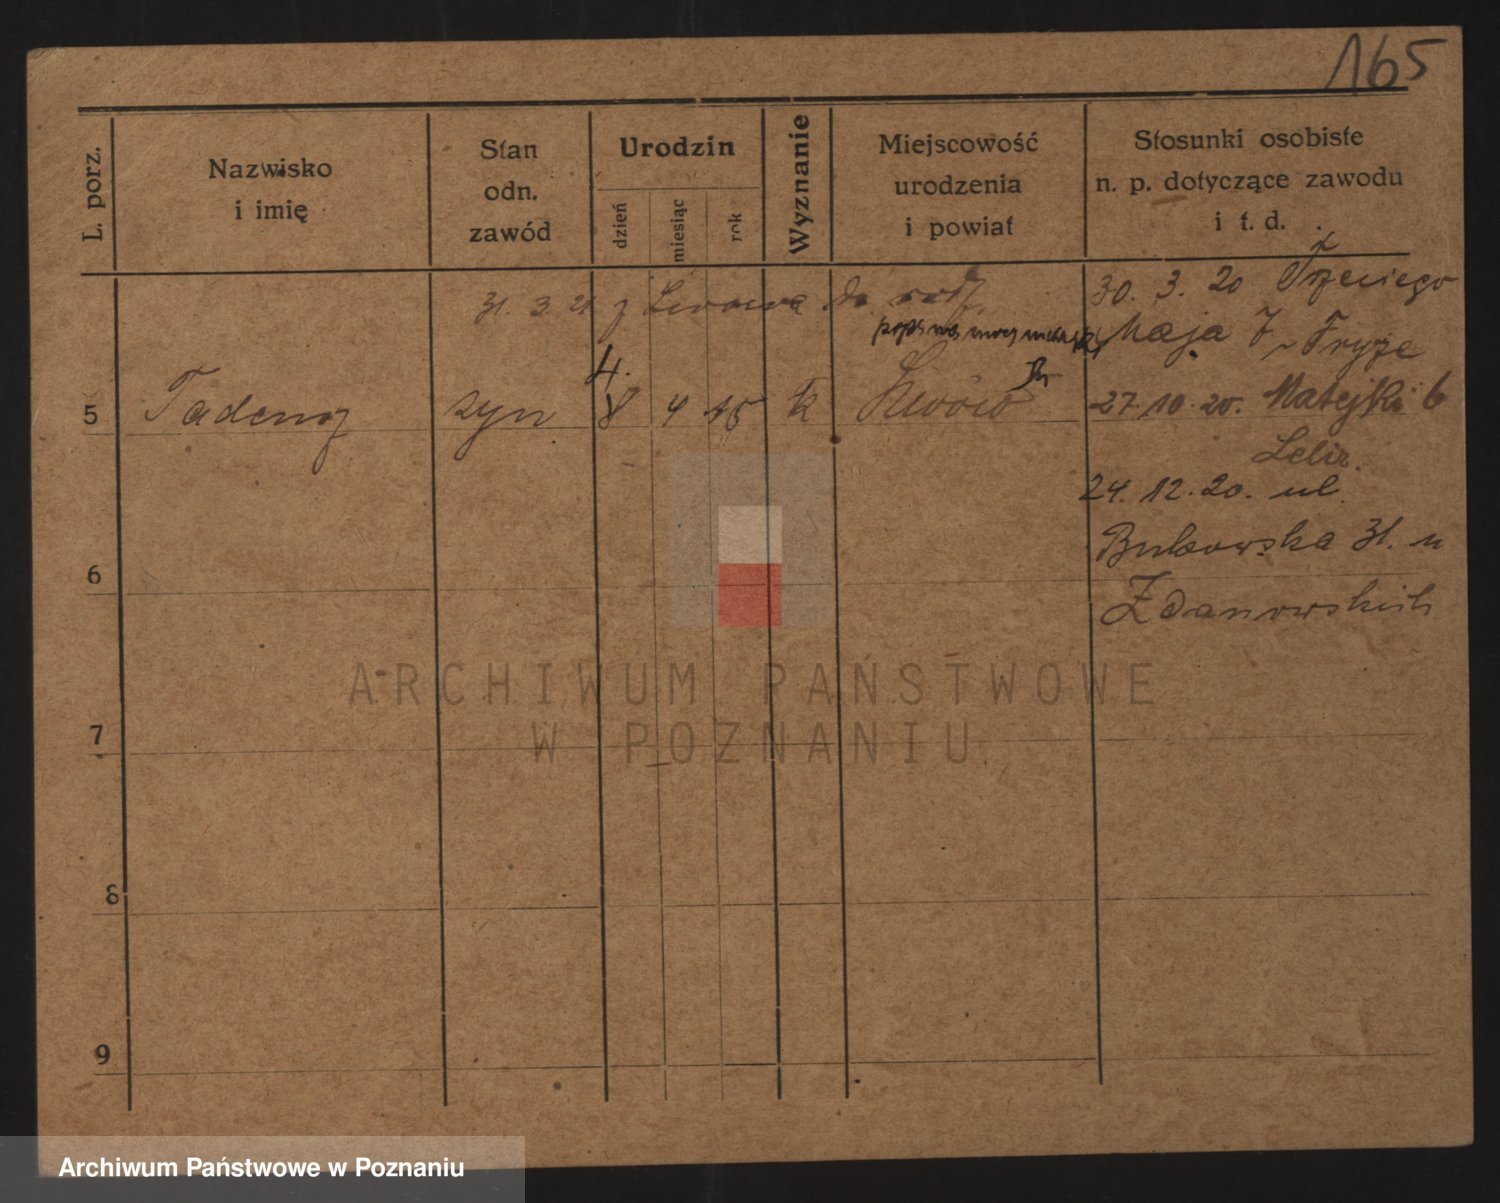 165
L. porz.
Nazwisko
i imię
Stan
odn.
zawód
Urodzin
dzień
miesiąc
rok
Wyznanie
Miejscowość
urodzenia
i powiat
Stosunki osobiste
n. p. dotyczące zawodu
i t. d.
31. 3. 21 z Lwowa do rodz.
30. 3. 20 Trzeciego
Maja 7 Fryze
4.
5 Tadeusz syn 8 4 15 k Lwów
27. 10. 20. Matejki 6
24. 12. 20. ul.
Bukowska 31. u
6
Zdanowskich
ARCHIWUM PAŃSTWOWE
W POZNANIU
7
8
9
Archiwum Państwowe w Poznaniu